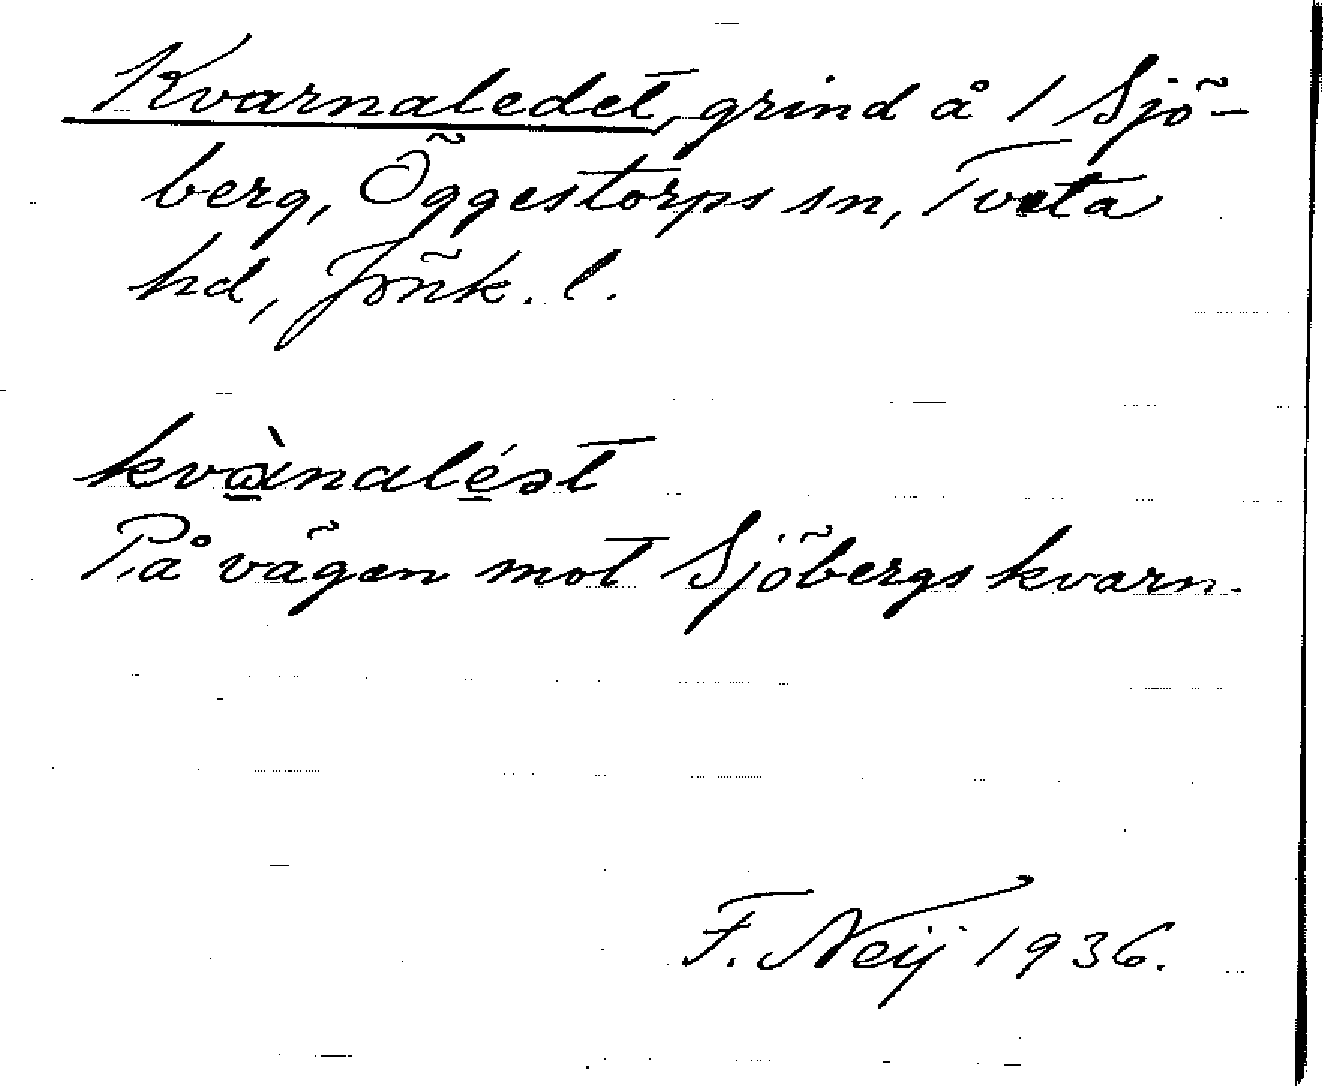 Kvarnaledet, grind å 1 Sjö-
berg, Öggestorps sn, Tveta
hd, Jönk. l.
kvànaléət
På vägen mot Sjöbergs kvarn.
F. Neij 1936.